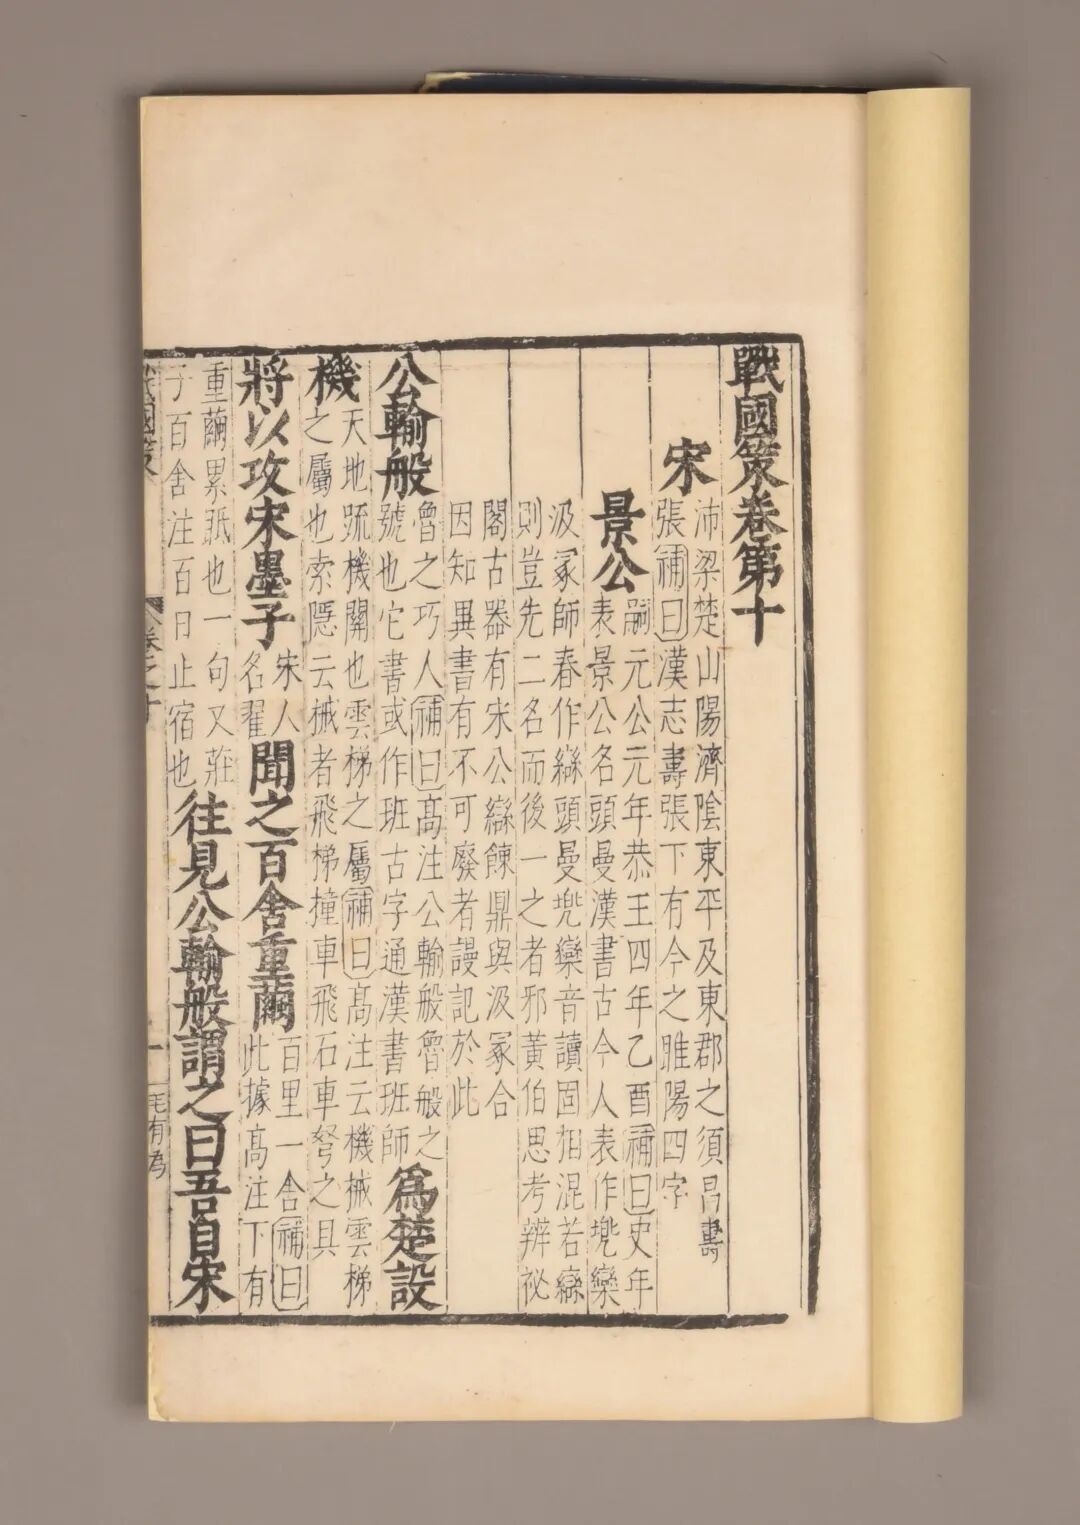 戰國策卷第十
宋
沛梁楚山陽濟陰東平及東郡之須昌壽
張補曰漢志壽張下有今之睢陽四字
景公
嗣元公元年恭王四年乙酉補曰史年
表景公名頭曼漢書古今人表作兠欒
汲冢師春作䜌頭曼兠欒音讀固相混若䜌
則豈先二名而後一之者邪黃伯思考辨祕
閣古器有宋公䜌餗鼎與汲冢合
因知異書有不可廢者謾記於此
公輸般
魯之巧人補曰高注公輸般魯般之
號也它書或作班古字通漢書班師
爲楚設
機
天地䟽機關也雲梯之屬補曰高注云機械雲梯
之屬也索隱云械者飛梯撞車飛石車弩之具
將以攻宋墨子
宋人
名翟
聞之百舍重繭
百里一舍補曰
此據高注下有
重繭累胝也一句又莊
子百舍注百日止宿也
往見公輸般謂之曰吾自宋
卷之十
一
毛有為